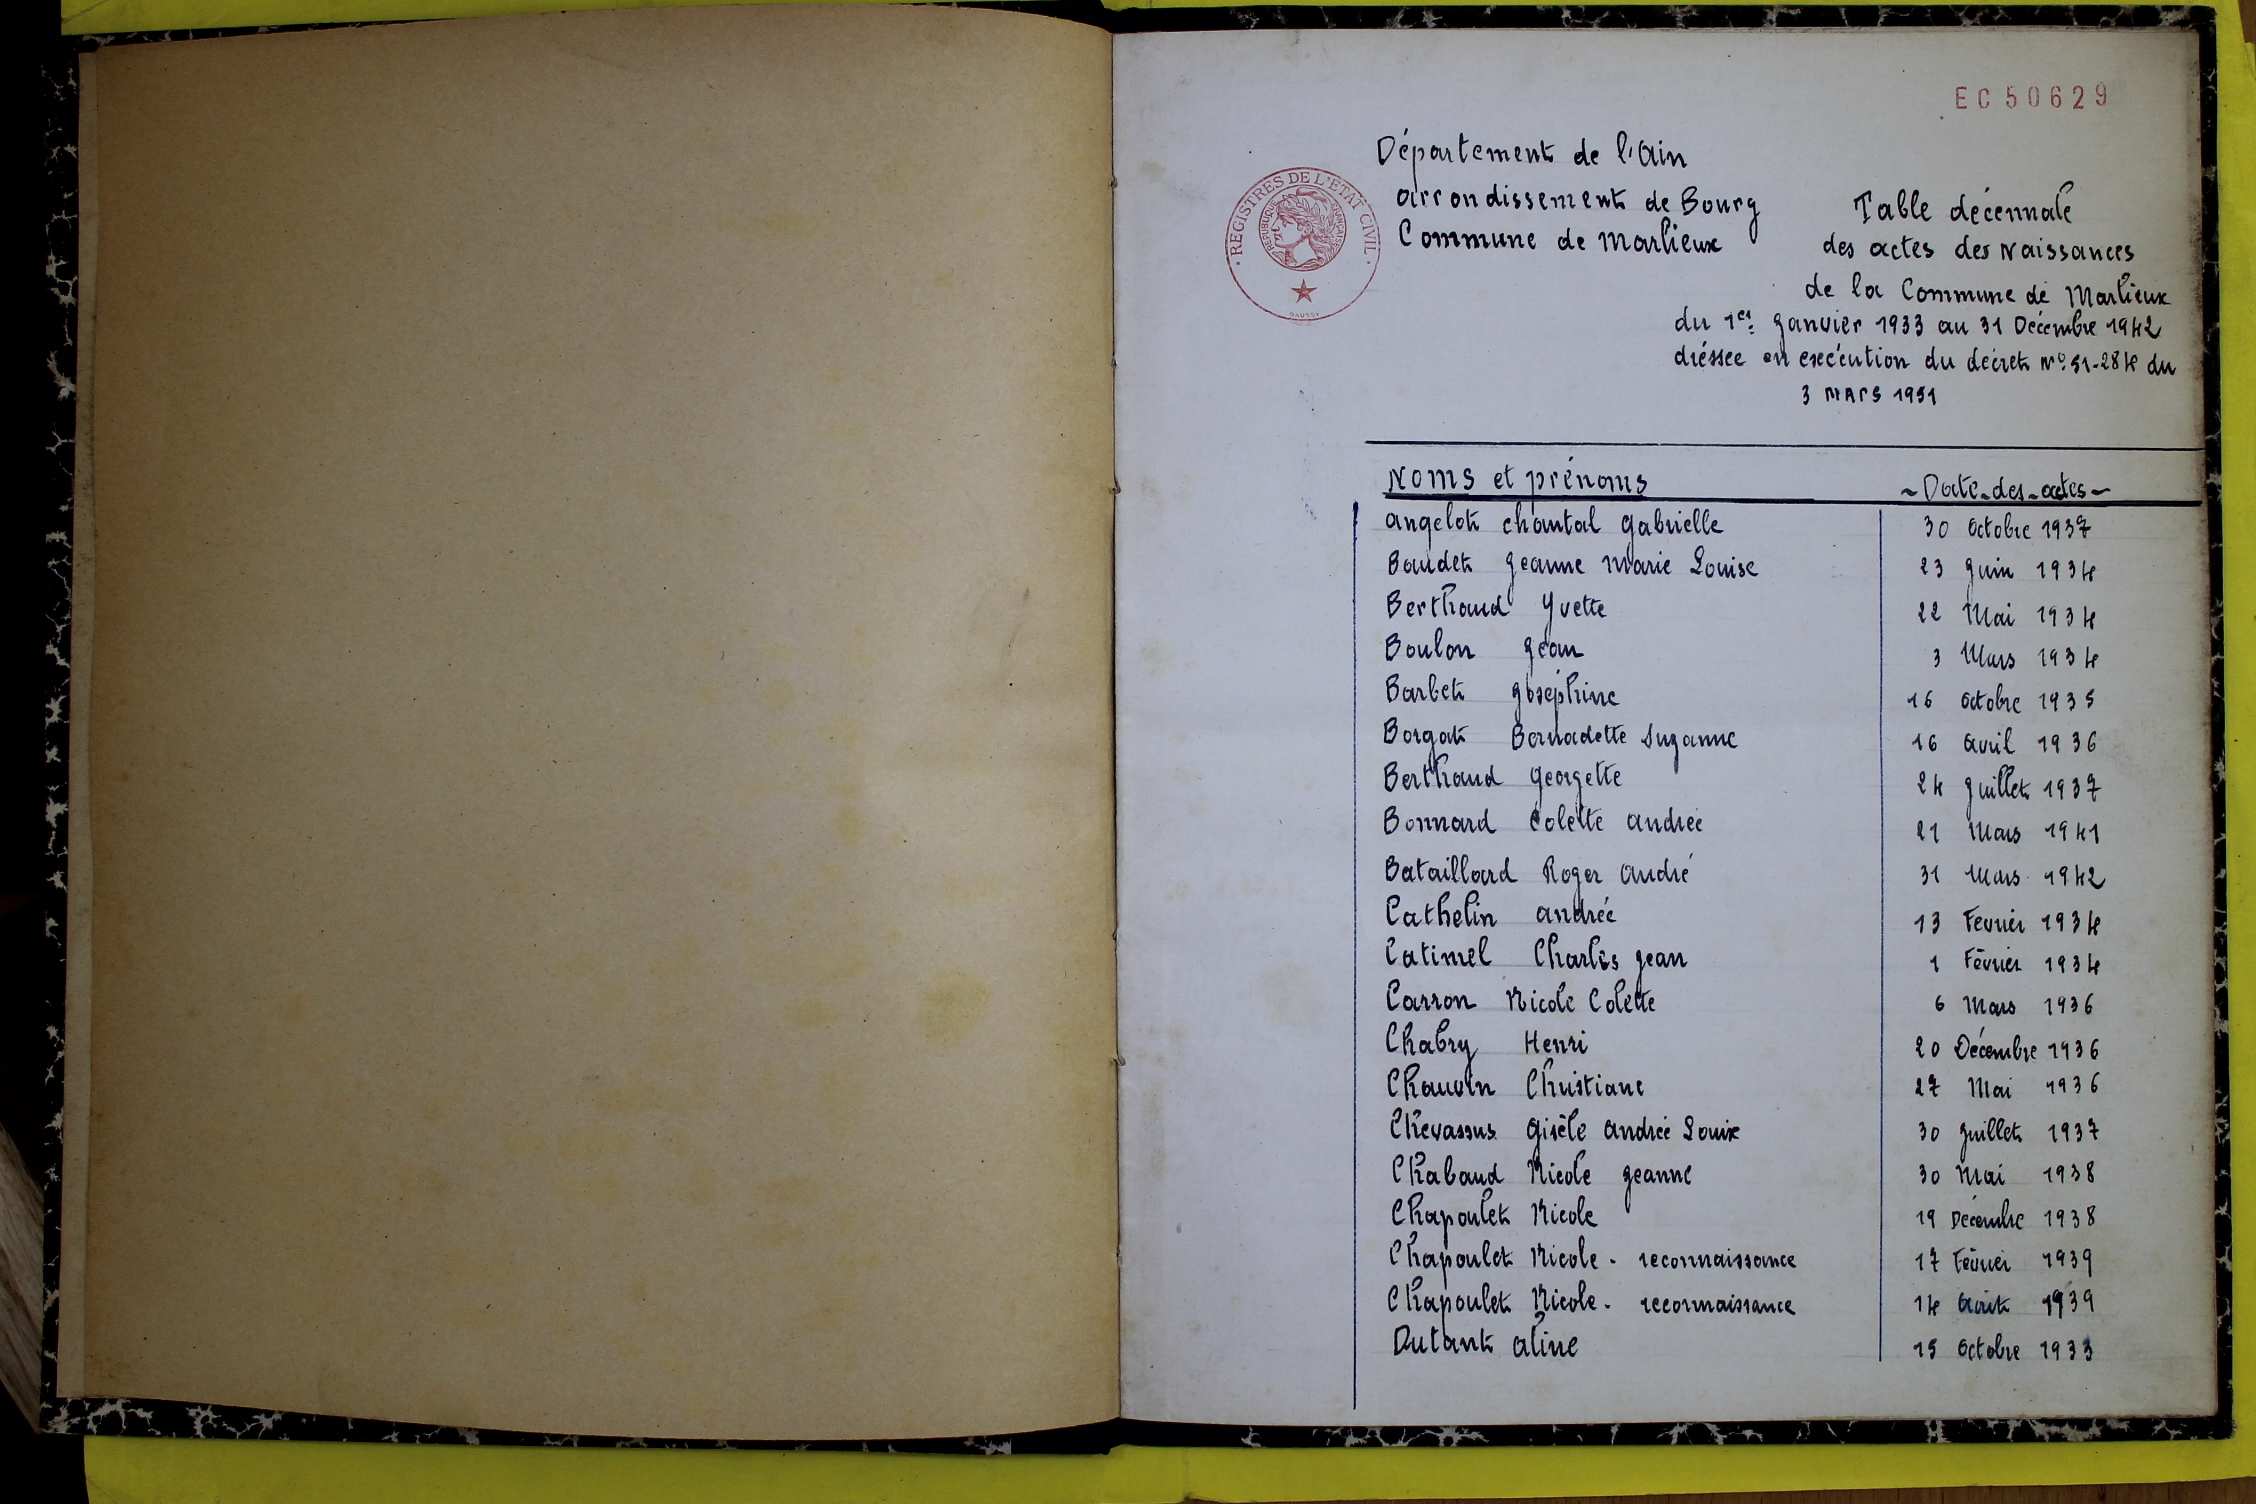 EC 50629
Département de l'Ain
arrondissement de Bourg
Commune de Marlieux
REGISTRES DE L'ETAT CIVIL
REPUBLIQUE FRANÇAISE
Table décennale
des actes des Naissances
de la Commune de Marlieux
du 1er Janvier 1933 au 31 Décembre 1942
dréssée en exécution du décret N° 51-284 du
3 MARS 1951
Noms et prénoms ~ Date des actes ~
Angelot Chantal Gabrielle 30 Octobre 1937
Baudet Jeanne Marie Louise 23 Juin 1934
Berthaud Yvette 22 Mai 1934
Boulon Jean 3 Mars 1934
Barbet Joséphine 16 Octobre 1935
Borgat Bernadette Suzanne 16 Avril 1936
Berthaud Georgette 24 Juillet 1937
Bonnard Colette Andrée 21 Mars 1941
Bataillard Roger André 31 Mars 1942
Cathelin Andrée 13 Février 1934
Catimel Charles Jean 1 Février 1934
Carron Nicole Colette 6 Mars 1936
Chabry Henri 20 Décembre 1936
Chauvin Christiane 27 Mai 1936
Chevassus Gisèle Andrée Louise 30 Juillet 1937
Chabaud Nicole Jeanne 30 Mai 1938
Chapoulet Nicole 19 Décembre 1938
Chapoulet Nicole - reconnaissance 17 Février 1939
Chapoulet Nicole - reconnaissance 14 Août 1939
Dutant Aline 15 Octobre 1933